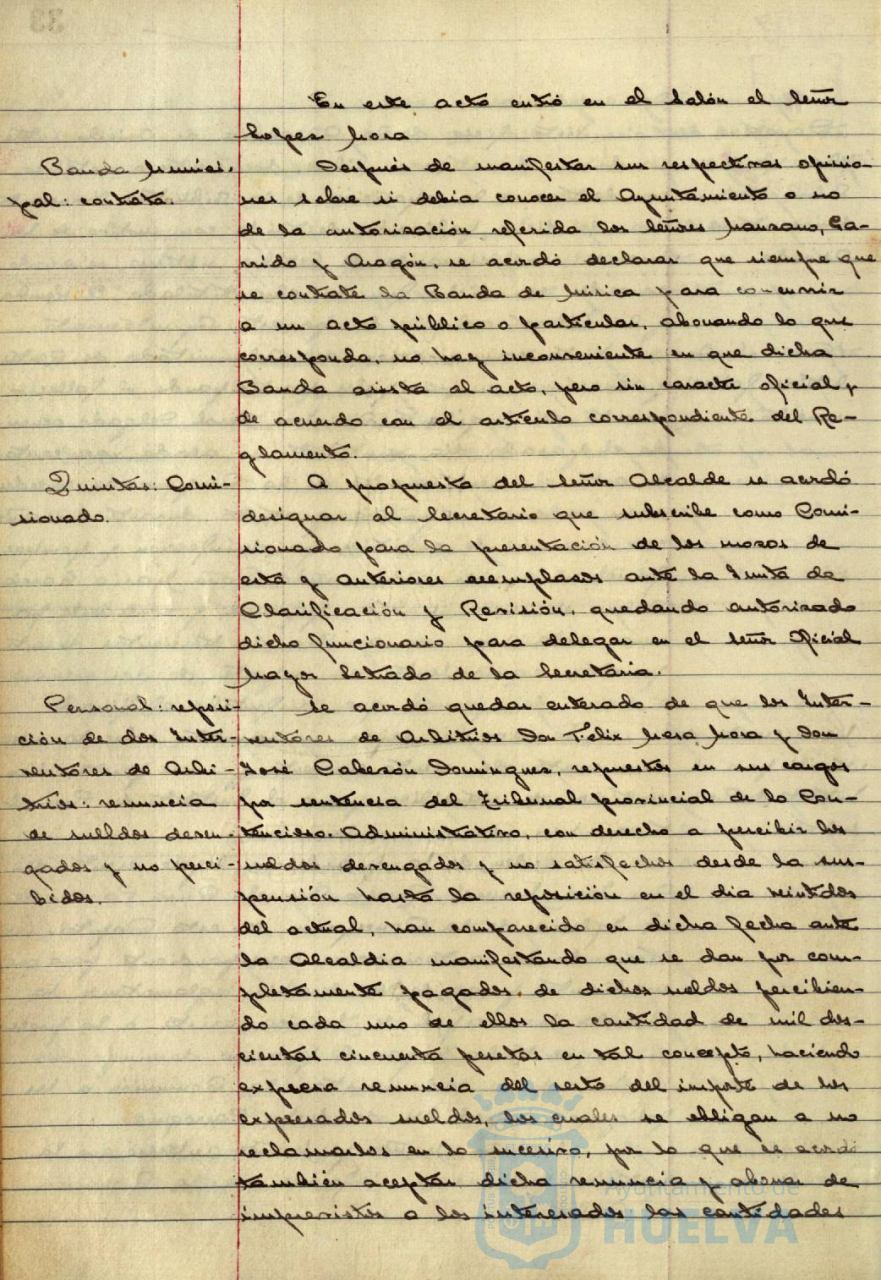 En este acto entró en el Salón el Señor
Lopez Mora
Banda Munici-
pal: contrata.
Después de manifestar sus respectivas opinio-
nes sobre si debia conocer el Ayuntamiento o no
de la autorización referida los Señores Manzano, Ga-
rrido y Aragón, se acordó declarar que siempre que
se contrate la Banda de Música para concurrir
a un acto público o particular, abonando lo que
corresponda, no hay inconveniente en que dicha
Banda asista al acto, pero sin caracter oficial y
de acuerdo con el artículo correspondiente del Re-
glamento.
Quintas: Comi-
sionado.
A propuesta del Señor Alcalde se acordó
designar al Secretario que subscribe como Comi-
sionado para la presentación de los mozos de
este y anteriores reemplazos ante la Junta de
Clasificación y Revisión, quedando autorizado
dicho funcionario para delegar en el Señor Oficial
Mayor Letrado de la Secretaria.
Personal: reposi-
ción de dos Inter-
ventores de Arbi-
trios: renuncia
de sueldos deven-
gados y no perci-
bidos.
Se acordó quedar enterado de que los Inter-
ventores de Arbitrios Don Felix Mesa Mora y Don
José Cabezón Dominguez, repuestos en sus cargos
por sentencia del Tribunal provincial de lo Con-
tencioso-Administrativo, con derecho a percibir los
sueldos devengados y no satisfechos desde la sus-
pensión hasta la reposición en el dia veintidos
del actual, han comparecido en dicha fecha ante
la Alcaldia manifestando que se dan por com-
pletamente pagados de dichos sueldos percibien-
do cada uno de ellos la cantidad de mil dos-
cientas cincuenta pesetas en tal concepto, haciendo
expresa renuncia del resto del importe de los
expresados sueldos, los cuales se obligan a no
reclamarlos en lo sucesivo, por lo que se acordó
también aceptar dicha renuncia y abonar de
imprevistos a los interesados las cantidades
Ayuntamiento de
HUELVA